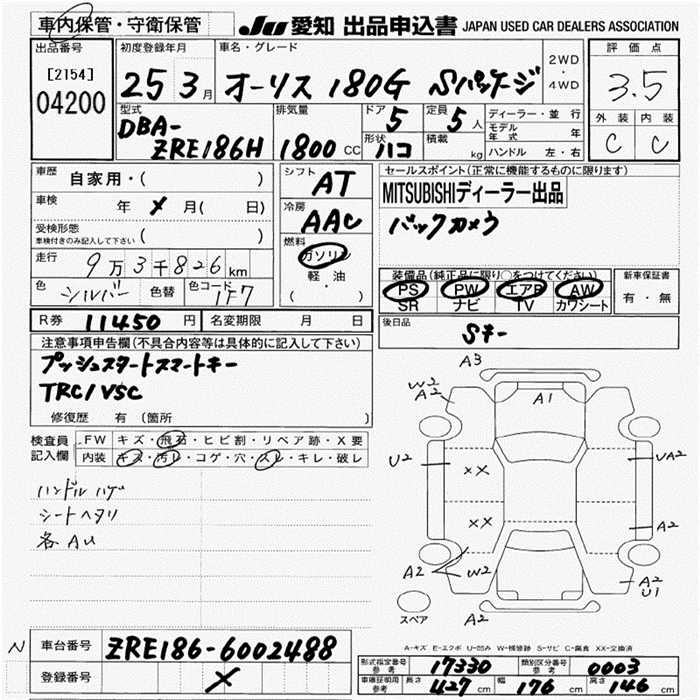 車内保管・守衛保管
JU 愛知 出品申込書 JAPAN USED CAR DEALERS ASSOCIATION
出品番号
[2154]
04200
初度登録年月
25 3月
車名・グレード
オーリス 180G Sパッケージ
2WD
・
4WD
評価点
3.5
外装 内装
C C
型式
DBA-
ZRE186H
排気量
1800 CC
ドア 5
形状 ハコ
定員 5 人
積載 kg
ディーラー・並行
モデル年式 年
ハンドル 左・右
車歴 自家用・( )
車検 年 メ 月( 日)
受検形態
車検付きのみ記入して下さい ( )
走行 9万3千826km
色 シルバー 色替 色コード 1F7
シフト AT
冷房 AAC
燃料
ガソリン
軽・油
( ・ )
セールスポイント(正常に機能するものに限ります)
MITSUBISHIディーラー出品
バックカメラ
装備品(純正品に限り○をつけてください)
PS PW エアB AW
SR ナビ TV カワシート
新車保証書
有・無
R券 11450 円 名変期限 月 日
後日品 Sキー
注意事項申告欄(不具合内容等は具体的に記入して下さい)
プッシュスタートスマートキー
TRC/VSC
修復歴 有 (箇所 )
検査員
記入欄
FW キズ・飛石・ヒビ割・リペア跡・X要
内装 キズ・汚レ・コゲ・穴・スレ・キレ・破レ
ハンドルハゲ
シートヘタリ
各AU
A3
W2
A2
A1
U2
XX
UA2
XX
A2
A2
W2
A2
U1
A2
スペア
A-キズ E-エクボ U-凹み W-補修跡 S-サビ C-腐食 XX-交換済
N 車台番号 ZRE186-6002488
登録番号 メ
形式指定番号 参考 17330 類別区分番号 参考 0003
車庫証明用 参考 長さ 427 cm 幅 176 cm 高さ 146 cm